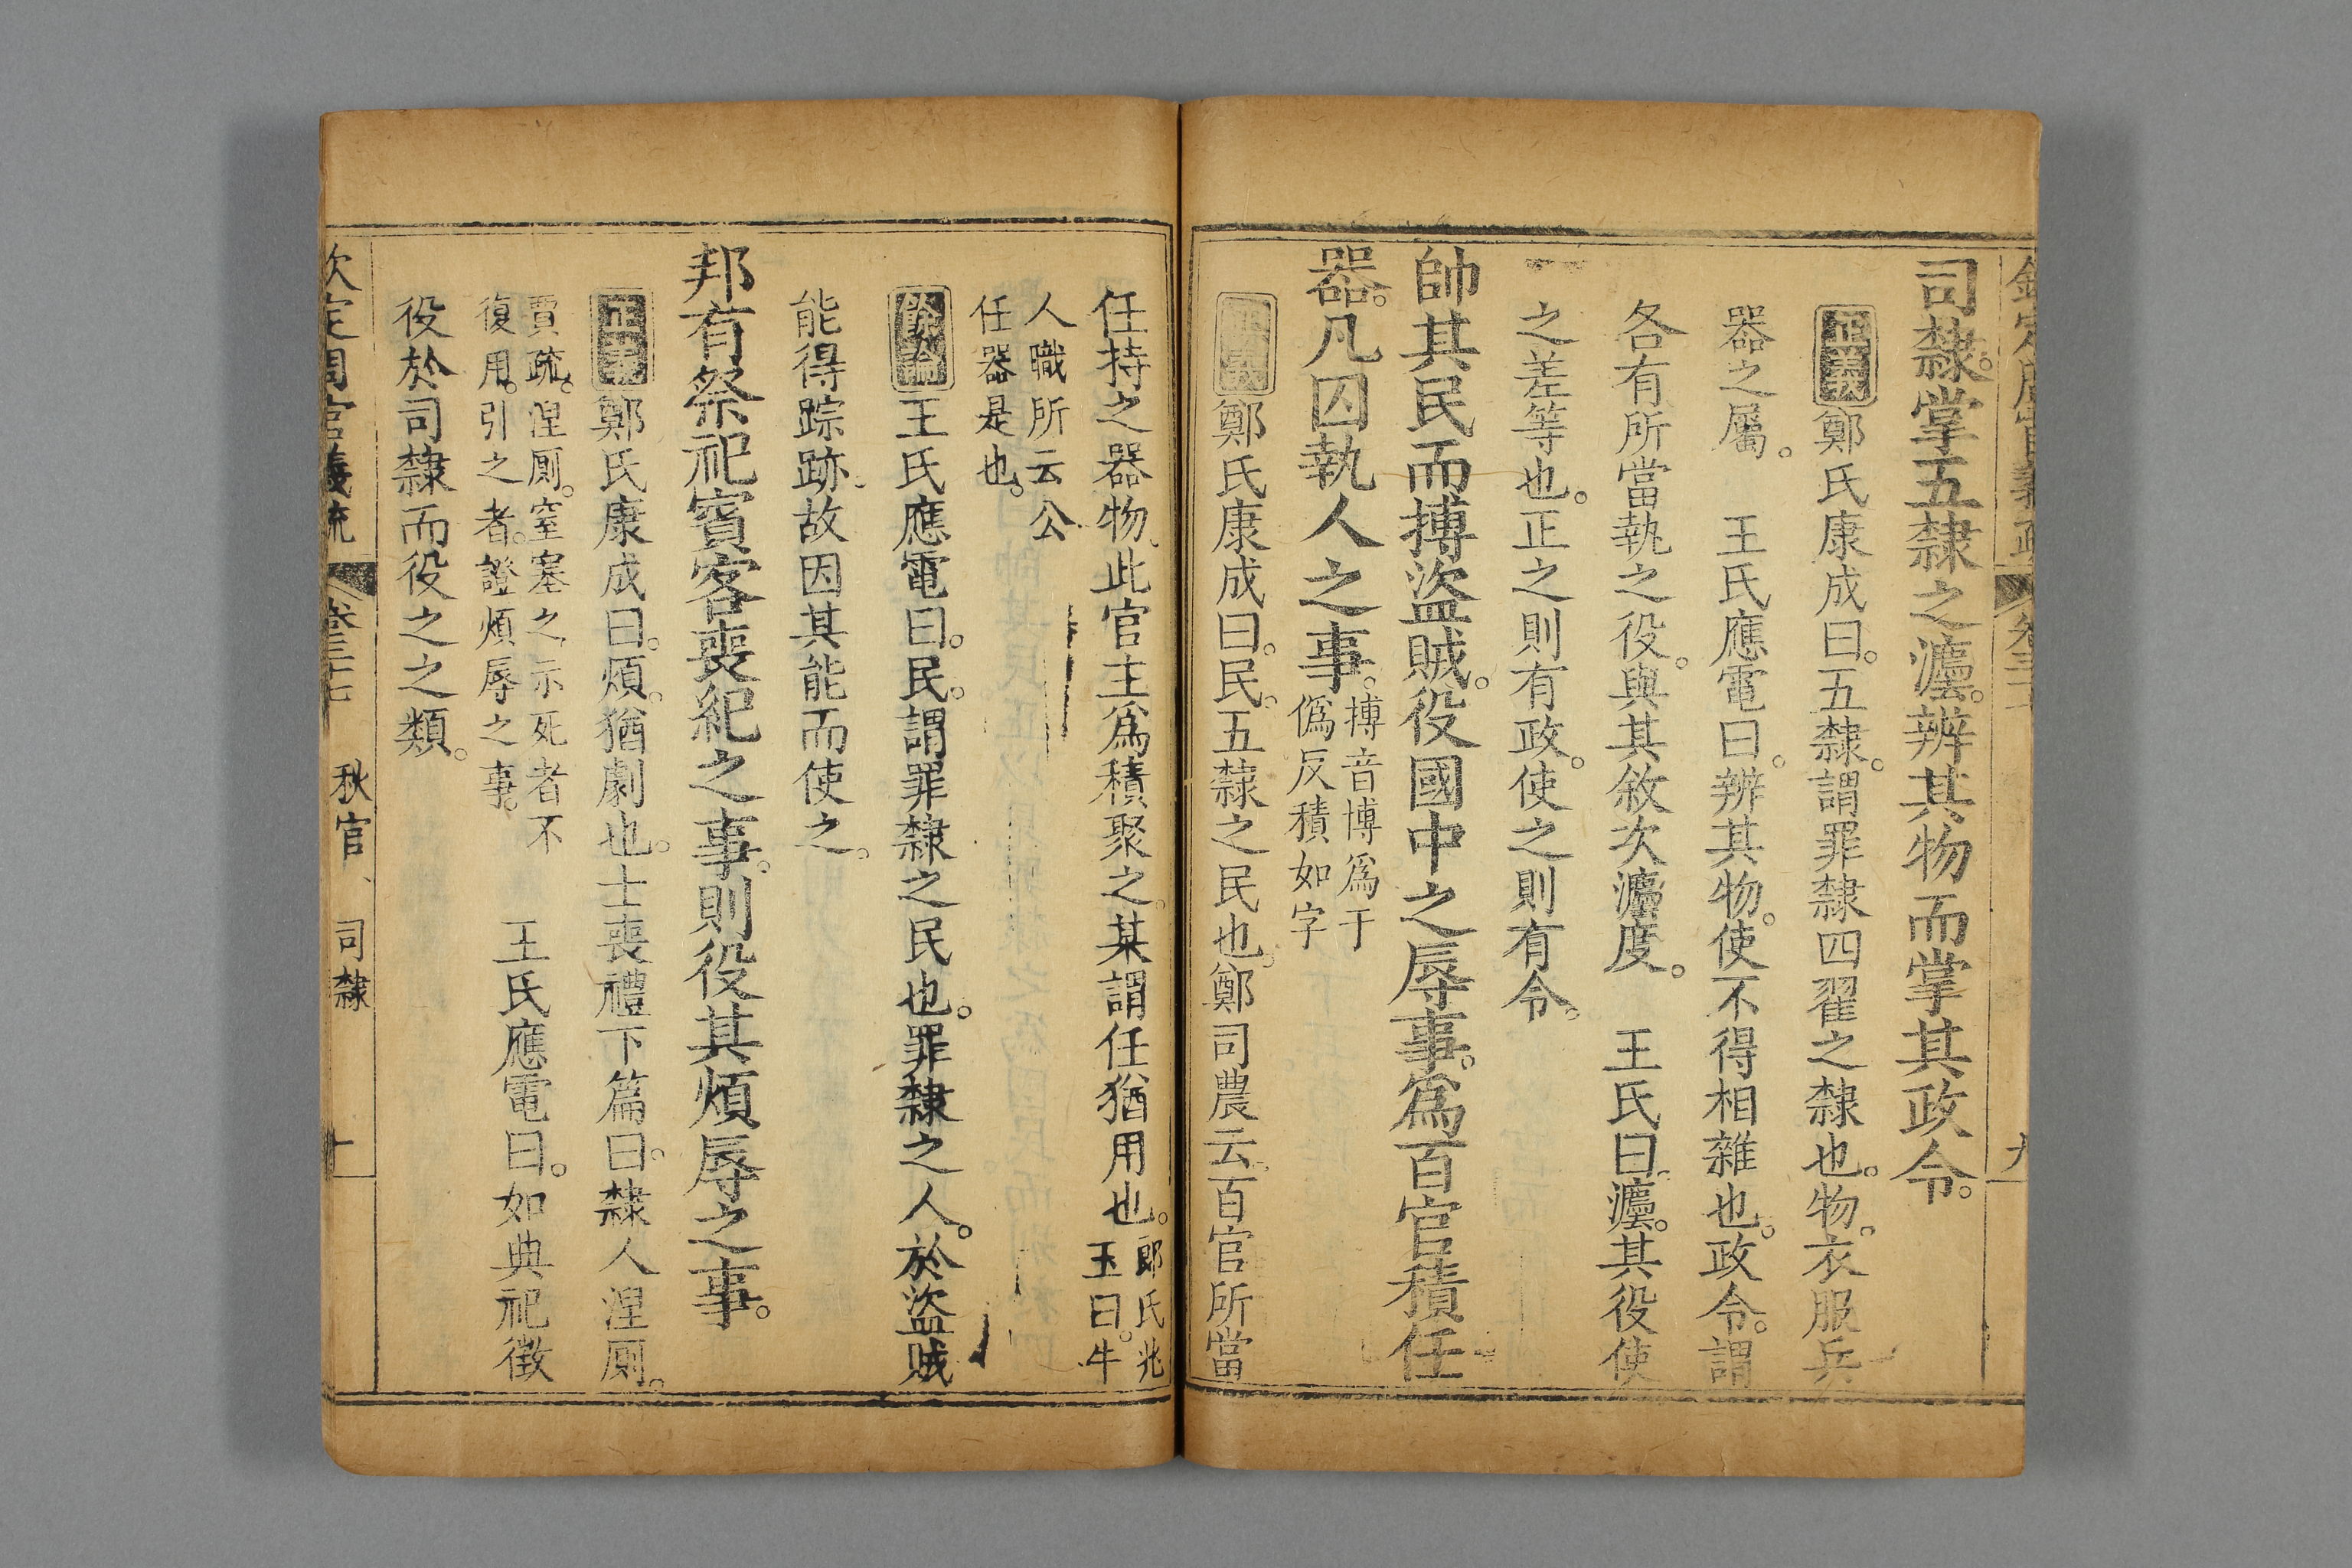 司隸。掌五隸之灋。辨其物而掌其政令。
正義鄭氏康成曰。五隸。謂罪隸四翟之隸也。物。衣服兵
器之屬。 王氏應電曰。辨其物。使不得相雜也。政令。謂
各有所當執之役。與其敘次灋度。 王氏曰。灋。其役使
之差等也。正之則有政。使之則有令。
帥其民而搏盜賊。役國中之辱事。爲百官積任
器。凡囚執人之事。搏音博爲于
僞反積如字
正義鄭氏康成曰。民。五隸之民也。鄭司農云。百官所當
任持之器物、此官主爲積聚之。某謂任猶用也。郎氏兆
玉曰。牛
人職所云公
任器是也。
餘論王氏應電曰。民。謂罪隸之民也。罪隸之人。於盜賊
能得踪跡、故因其能而使之。
邦有祭祀賓客喪紀之事。則役其煩辱之事。
正義鄭氏康成曰。煩。猶劇也。士喪禮下篇曰。隸人涅厠。
賈疏。涅厠。窒塞之、示死者不
復用。引之者。證煩辱之事。
王氏應電曰。如典祀徵
役於司隸而役之之類。
欽定周官義疏 卷三十七 秋官、 司隸 十